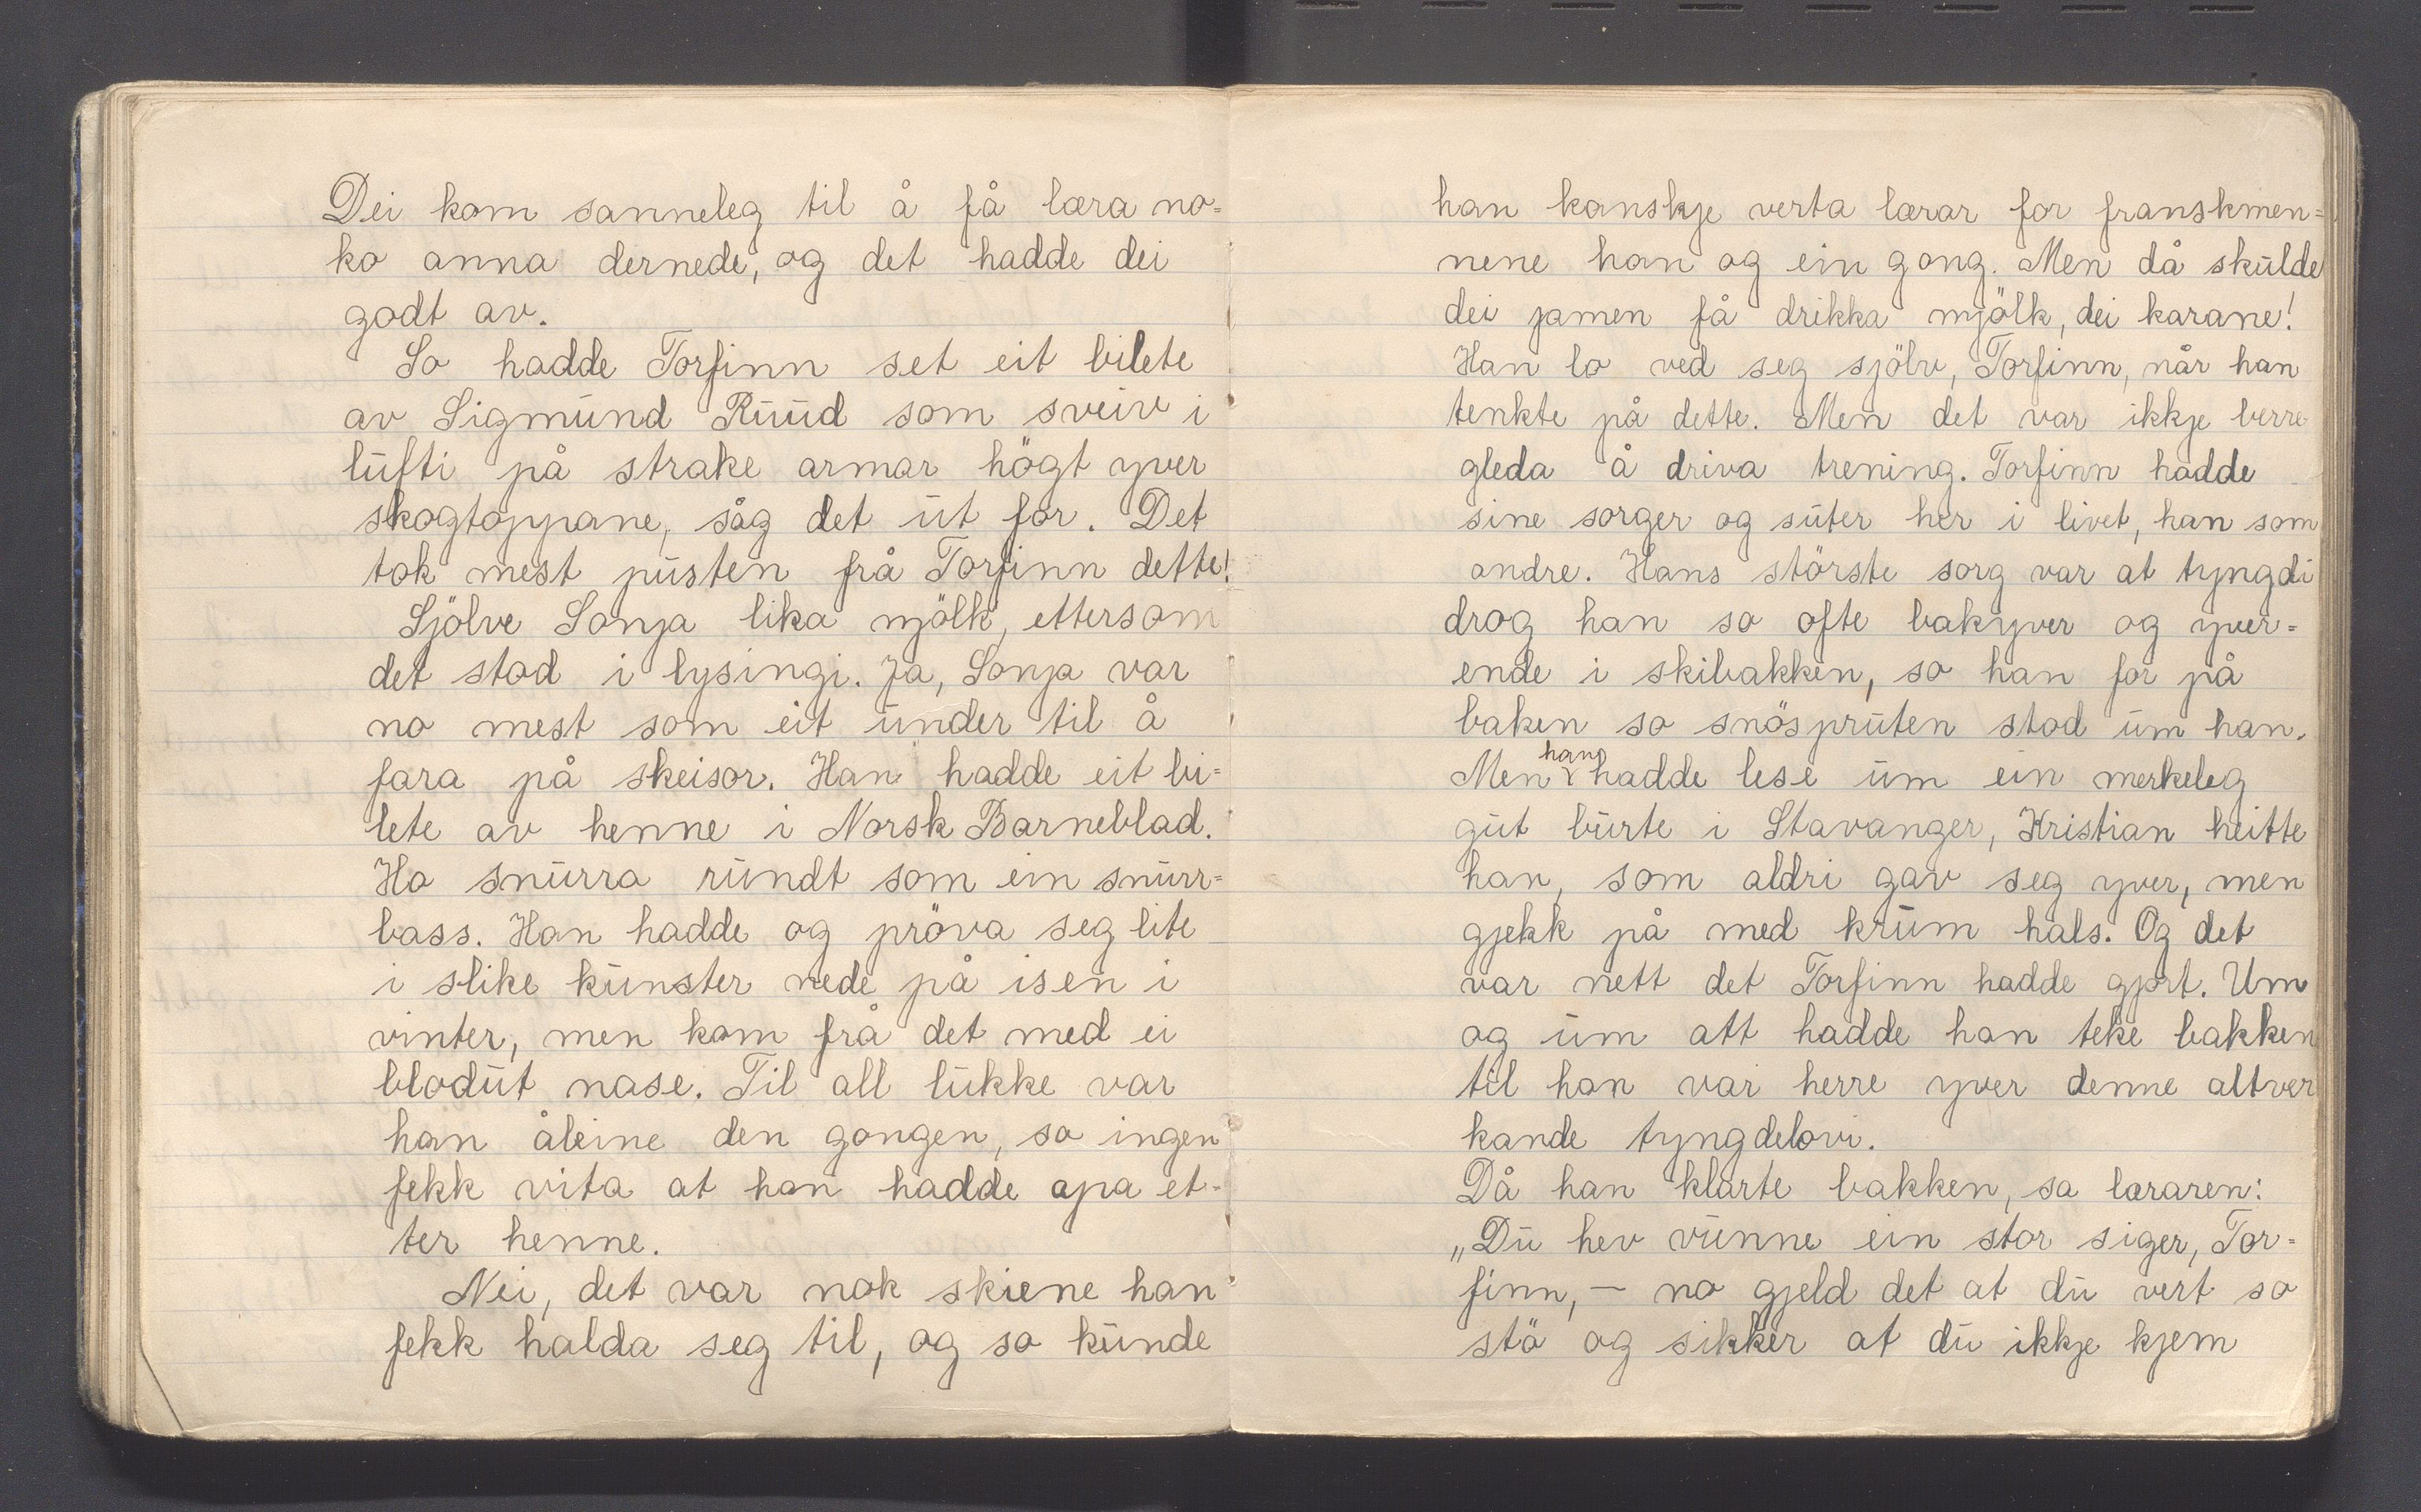 Dei kom sanneleg til å få læra no=
ko anna dernede, og det hadde dei
godt av.
So hadde Torfinn set eit bilete
av Sigmund Ruud som sveiv i
lufti på strake armar högt yver
skogtoppane, såg det ut for. Det
tok mest pusten frå Torfinn dette!
Sjölve Sonja lika mjölk, ettersom
det stod i lysingi. Ja, Sonja var
no mest som eit under til å
fara på skeisor. Han hadde eit bi=
lete av henne i Norsk Barneblad.
Ho snurra rundt som ein snurr=
bass. Han hadde og pröva seg lite
i slike kunster nede på isen i
vinter, men kom frå det med ei
blodut nase. Til all lukke var
han åleine den gongen, so ingen
fekk vita at han hadde apa et-
ter henne.
Nei, det var nok skiene han
fekk halda seg til, og so kunde
han kanskje verta lærar for franskmen=
nene han og ein gong. Men då skulde
dei jamen få drikka mjölk, dei karane!
Han lo ved seg sjölv, Torfinn, når han
tenkte på dette. Men det var ikkje berre
gleda å driva trening. Torfinn hadde
sine sorger og suter her i livet, han som
andre. Hans störste sorg var at tyngdi
drog han so ofte bakyver og yver=
ende i skibakken, so han for på
baken so snöspruten stod um han.
Men han hadde lese um ein merkeleg
gut burte i Stavanger, Kristian heitte
han, som aldri gav seg yver, men
gjekk på med krum hals. Og det
var nett det Torfinn hadde gjort. Um
og um att hadde han teke bakken
til han var herre yver denne altver
kande tyngdelovi.
Då han klarte bakken, sa læraren:
„Du hev vunne ein stor siger, Tor=
finn, — no gjeld det at du vert so
stö og sikker at du ikkje kjem